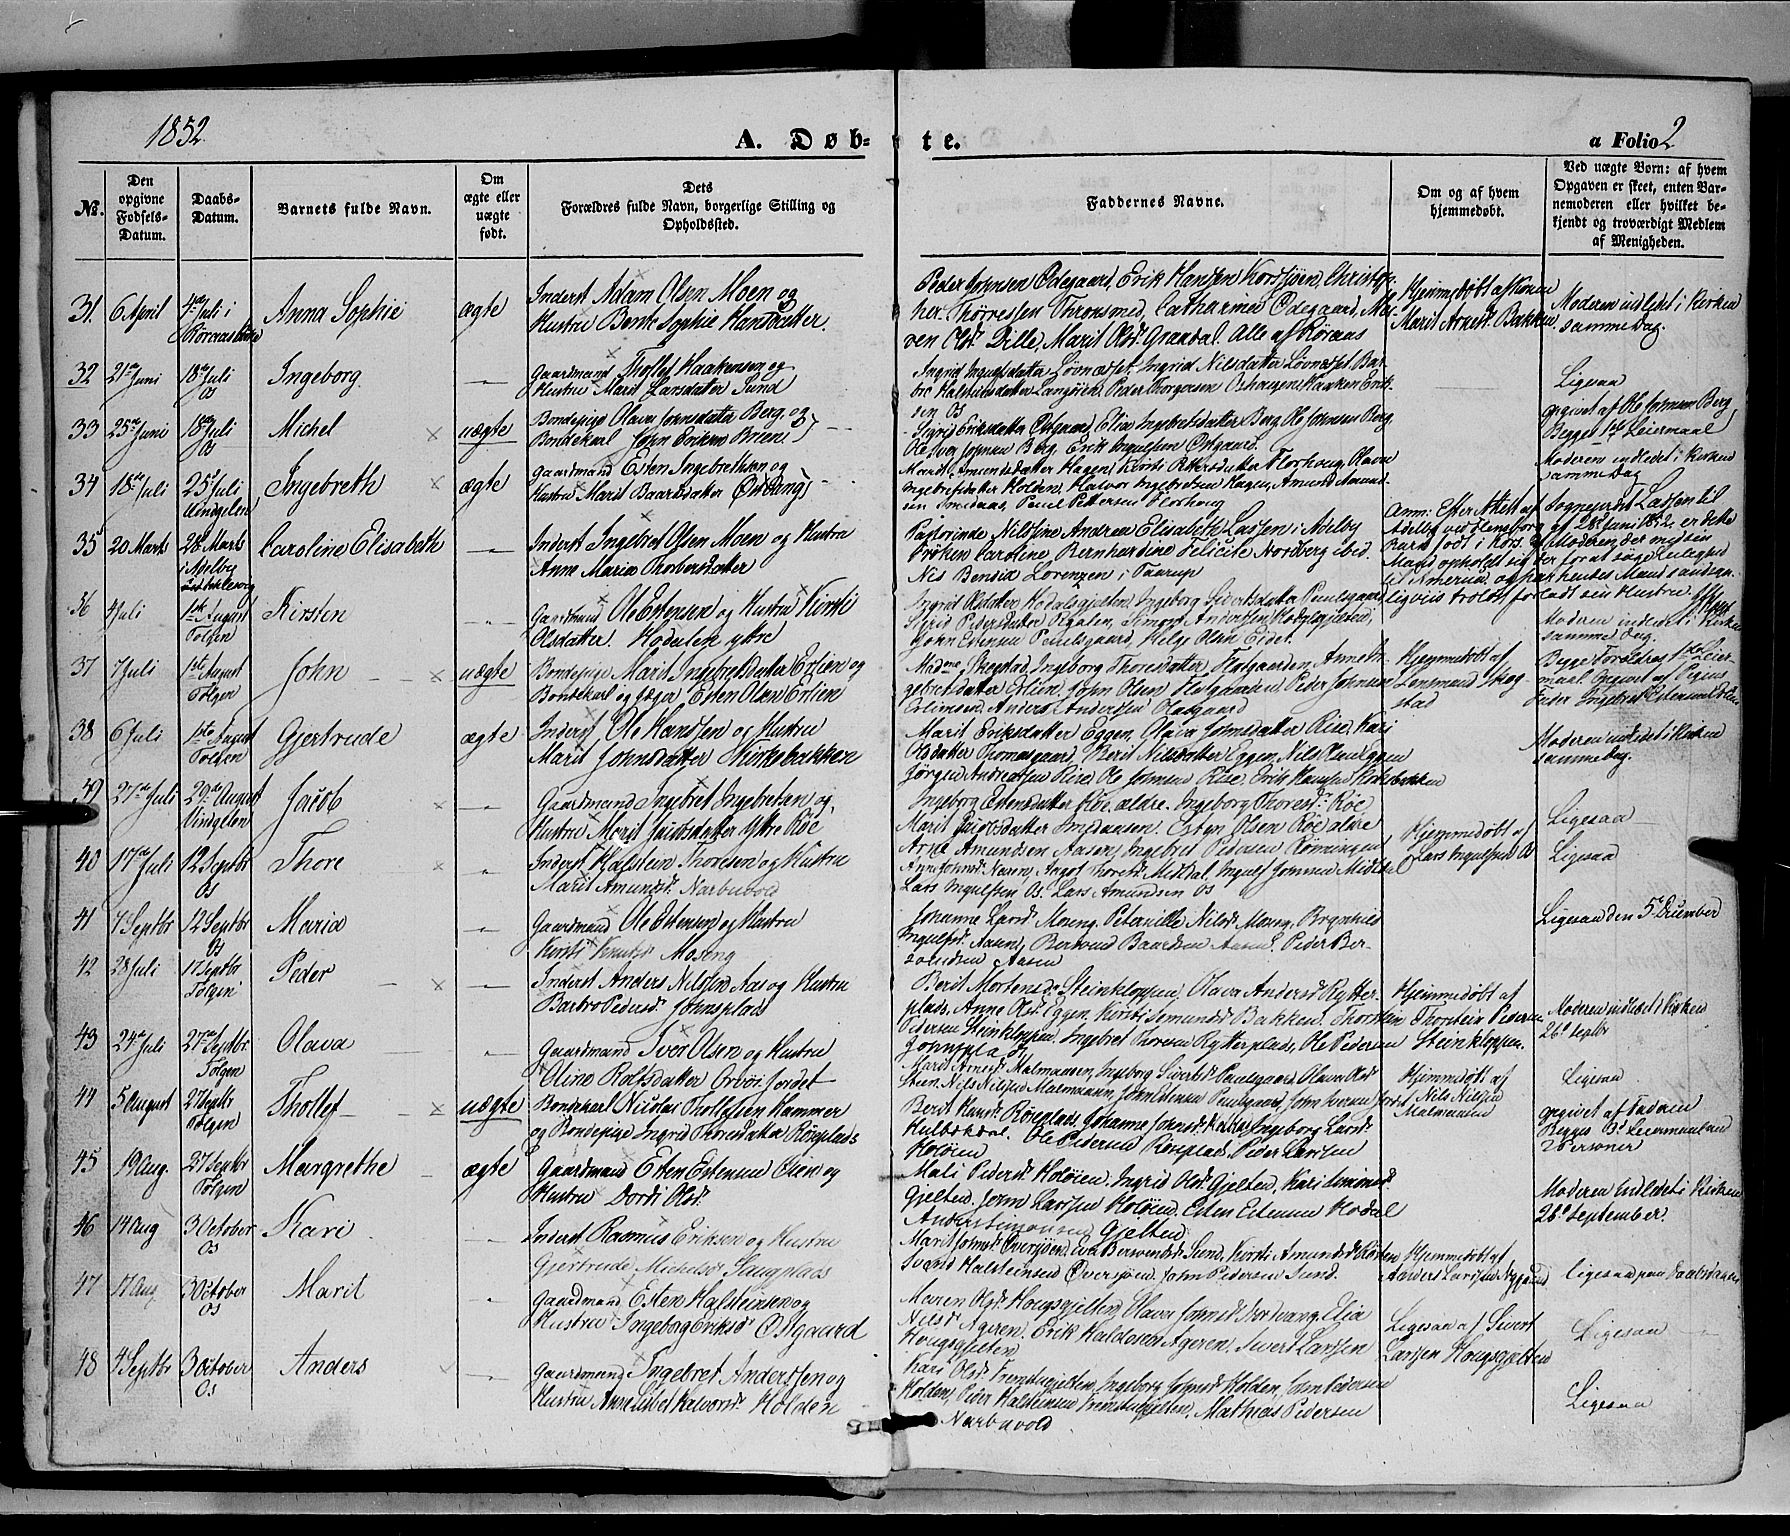 1852.
A. Døb- te.
a Folio 2
№.
Den opgivne Fødsels-Datum.
Daabs-Datum.
Barnets fulde Navn.
Om ægte eller uægte født.
Dets Forældres fulde Navn, borgerlige Stilling og Opholdssted.
Faddernes Navne.
Om og af hvem hjemmedøbt.
Ved uægte Børn: af hvem Opgaven er skeet, enten Barnemoderen eller hvilket bekjendt og troværdigt Medlem af Menigheden.
31. 6 April 4de Juli i Anna Sophie ægte Inderst Adam Olsen Moen og
Hustru Berit Sophie Hansdatter.
Peder Jonsen Ødegaard, Erik Hansen Korssjøen, Christop-
her Thorressen Thronsmed, Catharina Ødegaard, Ma-
ren Olsd. Dille, Marit Olsd. Graadal. Alle af Røraas
Hjemmedøbt af Konen
Marit Arnesd. Bakken
Moderen indledet i Kirken
samme Dag.
32 21de Juni 18de Juli Os Ingeborg Gaardmand Thollef Haakensen og
Hustru Marit Larsdatter Sund
Ligesaa
33 25de Juni 18de Juli Os Michel uægte Bondepige Olava Johnsdatter Berg og
Bondekarl John Eriksen
Sigrid Eriksdatter Østgaard, Elia Ingebretsdatter Berg Ole Johnsen Berg
Oliver Johnsen Berg. Erik Ingulfsen Østgaard.
opgivet af Ole Johnsen Berg
Begges 1ste Leiermaal
34 18de Juli 25de Juli Vindgelen Ingebreth ægte Gaardmand Esten Ingebrethsen og
Hustru Marit Baarsdatter
Marit Amundsdatter Hagen, Kirsti Pettersdatter Florhoug, Olava
Ingebretsdatter Holden, Halvor Ingebretsen Hagen, Amund Amund-
sen Smedaas, Poul Pettersen Florhoug
Moderen indledet i Kirken
samme Dag
35 20 Marts 28 Marts Caroline Elisabeth Inderst Ingebret Olsen Moen og Hustru
Anne Maria Thorbersdatter
Pastorinde Nilsine Andrea Elisabeth Lassen i Adelby
Frøken Caroline Bernhardine Felicite Nordberg ibid.
Nis Bendix Lorenzen i Taarup
Anm: Efter Attest af Sogneprest Lassen til
Adelby ved Flensborg af 28de Juni 1852, er dette
Barn født i
36 4 Juli 1ste August Tolgen Kirsten Gaardmand Ole Estensen og Hustru Kirsti
Olsdatter. Hodalen ytre
Ingrid Olsdatter Hodalsgjelten, Ingeborg Sivertsdatter Poulsgaard
Sigrid Pedersdatter Simon Andersen
John Estensen Poulsgaard, Helge Olsen Eidet.
Moderen indledet i Kirken
samme Dag.
37 7 Juli 1ste August Tolgen John uægte Bondepige Marit Ingebretsdatter Erlien og
Bondekarl og Jæger Esten Olsen Erlien
Madme Skogstad, Ingeborg Thoresdatter Flotgaarden, Anne In-
gebretsdatter Erlien, John Olsen Flotgaarden, Peder Johnsen
Erlimoen, Anders Andersen
Hjemmedøbt af
Lensmand Skog-
stad
Begge Foreldres 1ste Leier-
maal. Opgivet af Pigens
Fader Ingebret Estensen Erlien
38 6 Juli 1ste August Tolgen Gjertrude ægte Inderst Ole Hansen og Hustru
Marit Johnsdatter Kirkebakken
Marit Eriksdatter Eggen, Olava Johnsdatter Rise, Kari
Olsdatter Thomasgaard, Berit Nilsdatter Eggen, Nils Olsen Eggen
Jørgen Andreassen Riise, Ole Johnsen Riise, Erik Hansen Kirkebakken
Moderen indledet i Kirken
samme Dag.
39 27de Juli 29de August Vindgelen Jacob Gaardmand Ingebret Ingebretsen og
Hustru Marit Jacobsdatter Ytre Røe
Ingeborg Estensdatter Røe ældre. Ingeborg Thoresd. Røe
Marit Jacobsdatter Smedaasen. Esten Olsen Røe ældre
Arne Amundsen Aasen, Ingebret Pedersen Rønningen
Ligesaa
40 17de Juli 12 Septbr Os Thore Inderst Halstein Thoresen og Hustru
Marit Amundsd. Narbuvold
Anne Johnsd. Næren, Angot Thoresd. Mitdal, Ingulf Jonsen Mitdal
Lars Ingulfsen Os. Lars Amundsen Os
Hjemmedøbt af
Lars Ingulfsen Os
Ligesaa
41 7 Septbr 12 Septbr Os Maria Gaardmand Ole Estensen og Hustru
Kirsti Knudsd. Moseng
Johanne Larsd. Moseng, Peternille Nilsd. Moseng, Brynhild
Ingulfsd. Aasen, Bersvend Baardsen Aasen, Peder Ber-
svendsen Aasen
Ligesaa den 5te December
42 28 Juli 17 Septbr Tolgen Peder Inderst Anders Nilsen Aas og Hustru
Barbro Pedersd. Johnsplads
Berit Mortensd. Steinkloppen, Olava Andersd. Rytter-
plads, Anne Olsd. Eggen, Kirsti Semundsd. Bakken, Thorstein
Pedersen Steinkloppen, Ingebret Thoresen Rytterplads, Ole Pedersen
Johnsplads
Hjemmedøbt af
Thorstein Pedersen
Steinkloppen.
Moderen indledet i Kirken
26de Septbr
43 24de Juli 27de Septbr Tolgen Olava Gaardmand Iver Olsen og Hustru
Oline Rolfsdatter
Marit Arnesd. Malmaasen, Ingeborg Sivertsd. Poulsgaard, Olava Olsd.
Nils Nilsen Malmaasen, John Estensen Poulsgaard, John Iversen
Hjemmedøbt af
Nils Nilsen
Malmaasen
Ligesaa
44 5 August 27 Septbr Tolgen Thollef uægte Bondekarl Nicolai Thollefsen Hammer
og Bondepige Ingrid Thoresdatter Røseplads
Berit Hansd. Røseplads, Johanne Johnsd. Ingeborg Larsd.
Ole Pedersen Røseplads, Peder Larsen
Holøien
opgivet af Faderen
Begges 1ste Leiermaal
45 19 Aug. 27 Septbr Tolgen Margrethe ægte Gaardmand Esten Estensen Øien og
Hustru Dordi Olsd.
Mali Pedersd. Holøien, Ingrid Olsd. Gjelten, Kari Simonsd.
Gjelten, John Larsen Holøien, Esten Estensen Hodal
Anders Simonsen Gjelten
Moderen indledet i Kirken
26de September.
46 14 Aug 3 October Os Kari Inderst Rasmus Eriksen og Hustru
Gjertrude Michelsd. Saugplads
Marit Johnsd. Øversjøen, Eva Bersvendsd. Sund, Kirsti Amundsd.
Svend Halsteinsen Øversjøen, John Pedersen Sund.
Hjemmedøbt af
Anders Larsen Nygaard
Ligesaa paa Daabsdagen
47 17 Aug 3 October Os Marit Gaardmand Esten Halsteinsen og
Hustru Ingeborg Eriksd. Østgaard
Maren Olsd. Hougsgjelten, Olava Johnsd. Nordvang, Elia
Nilsd. Ageren, Erik Haldosen Ageren, Sivert Larsen
Hougsgjelten
Ligesaa af Sivert
Larsen Hougsgjelten
Ligesaa
48 4 Septbr 3 October Os Anders Gaardmand Ingebret Anderssen og
Hustru Anne Lisbet Halvorsd. Holden
Kari Olsd. Fremstegjelten, Ingeborg Johnsd. Holden, John Pedersen
Holden, Peder Halsteinsen Fremstegjelten, Mathias Pedersen
Narbuvold
Ligesaa